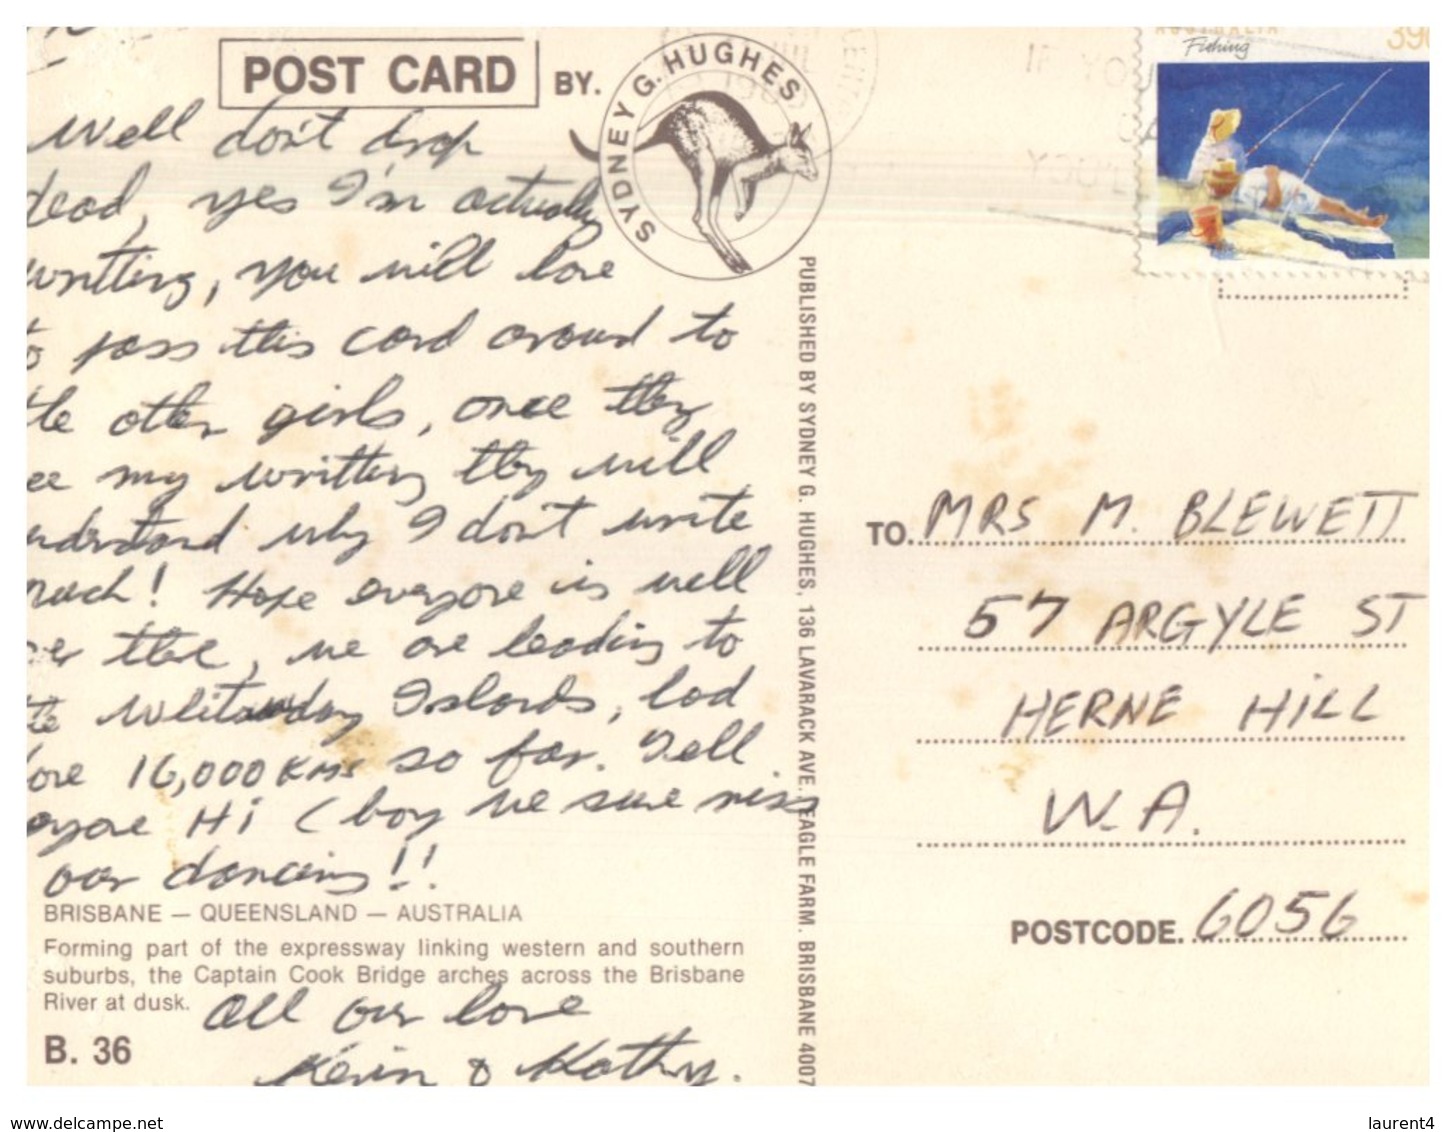 POST CARD BY.
SYDNEY G. HUGHES
Well don't drop
dead, yes I'm actually
writting, you will love
to pass this card around to
the other girls, once they
see my writting they will
understand why I don't write
much! Hope everyone is well
over there, we are heading to
the Whitsunday Islands, had
done 16,000 KMS so far. Tell
everyone Hi (boy we sure miss
our dancing!!
BRISBANE – QUEENSLAND – AUSTRALIA
Forming part of the expressway linking western and southern
suburbs, the Captain Cook Bridge arches across the Brisbane
River at dusk.
All our love
Kevin & Kathy.
B. 36
PUBLISHED BY SYDNEY G. HUGHES, 136 LAVARACK AVE. EAGLE FARM. BRISBANE 4007
AUSTRALIA
Fishing
39c
IF YOU
TO. MRS M. BLEWETT
57 ARGYLE ST
HERNE HILL
W.A.
POSTCODE. 6056
www.delcampe.net
laurent4